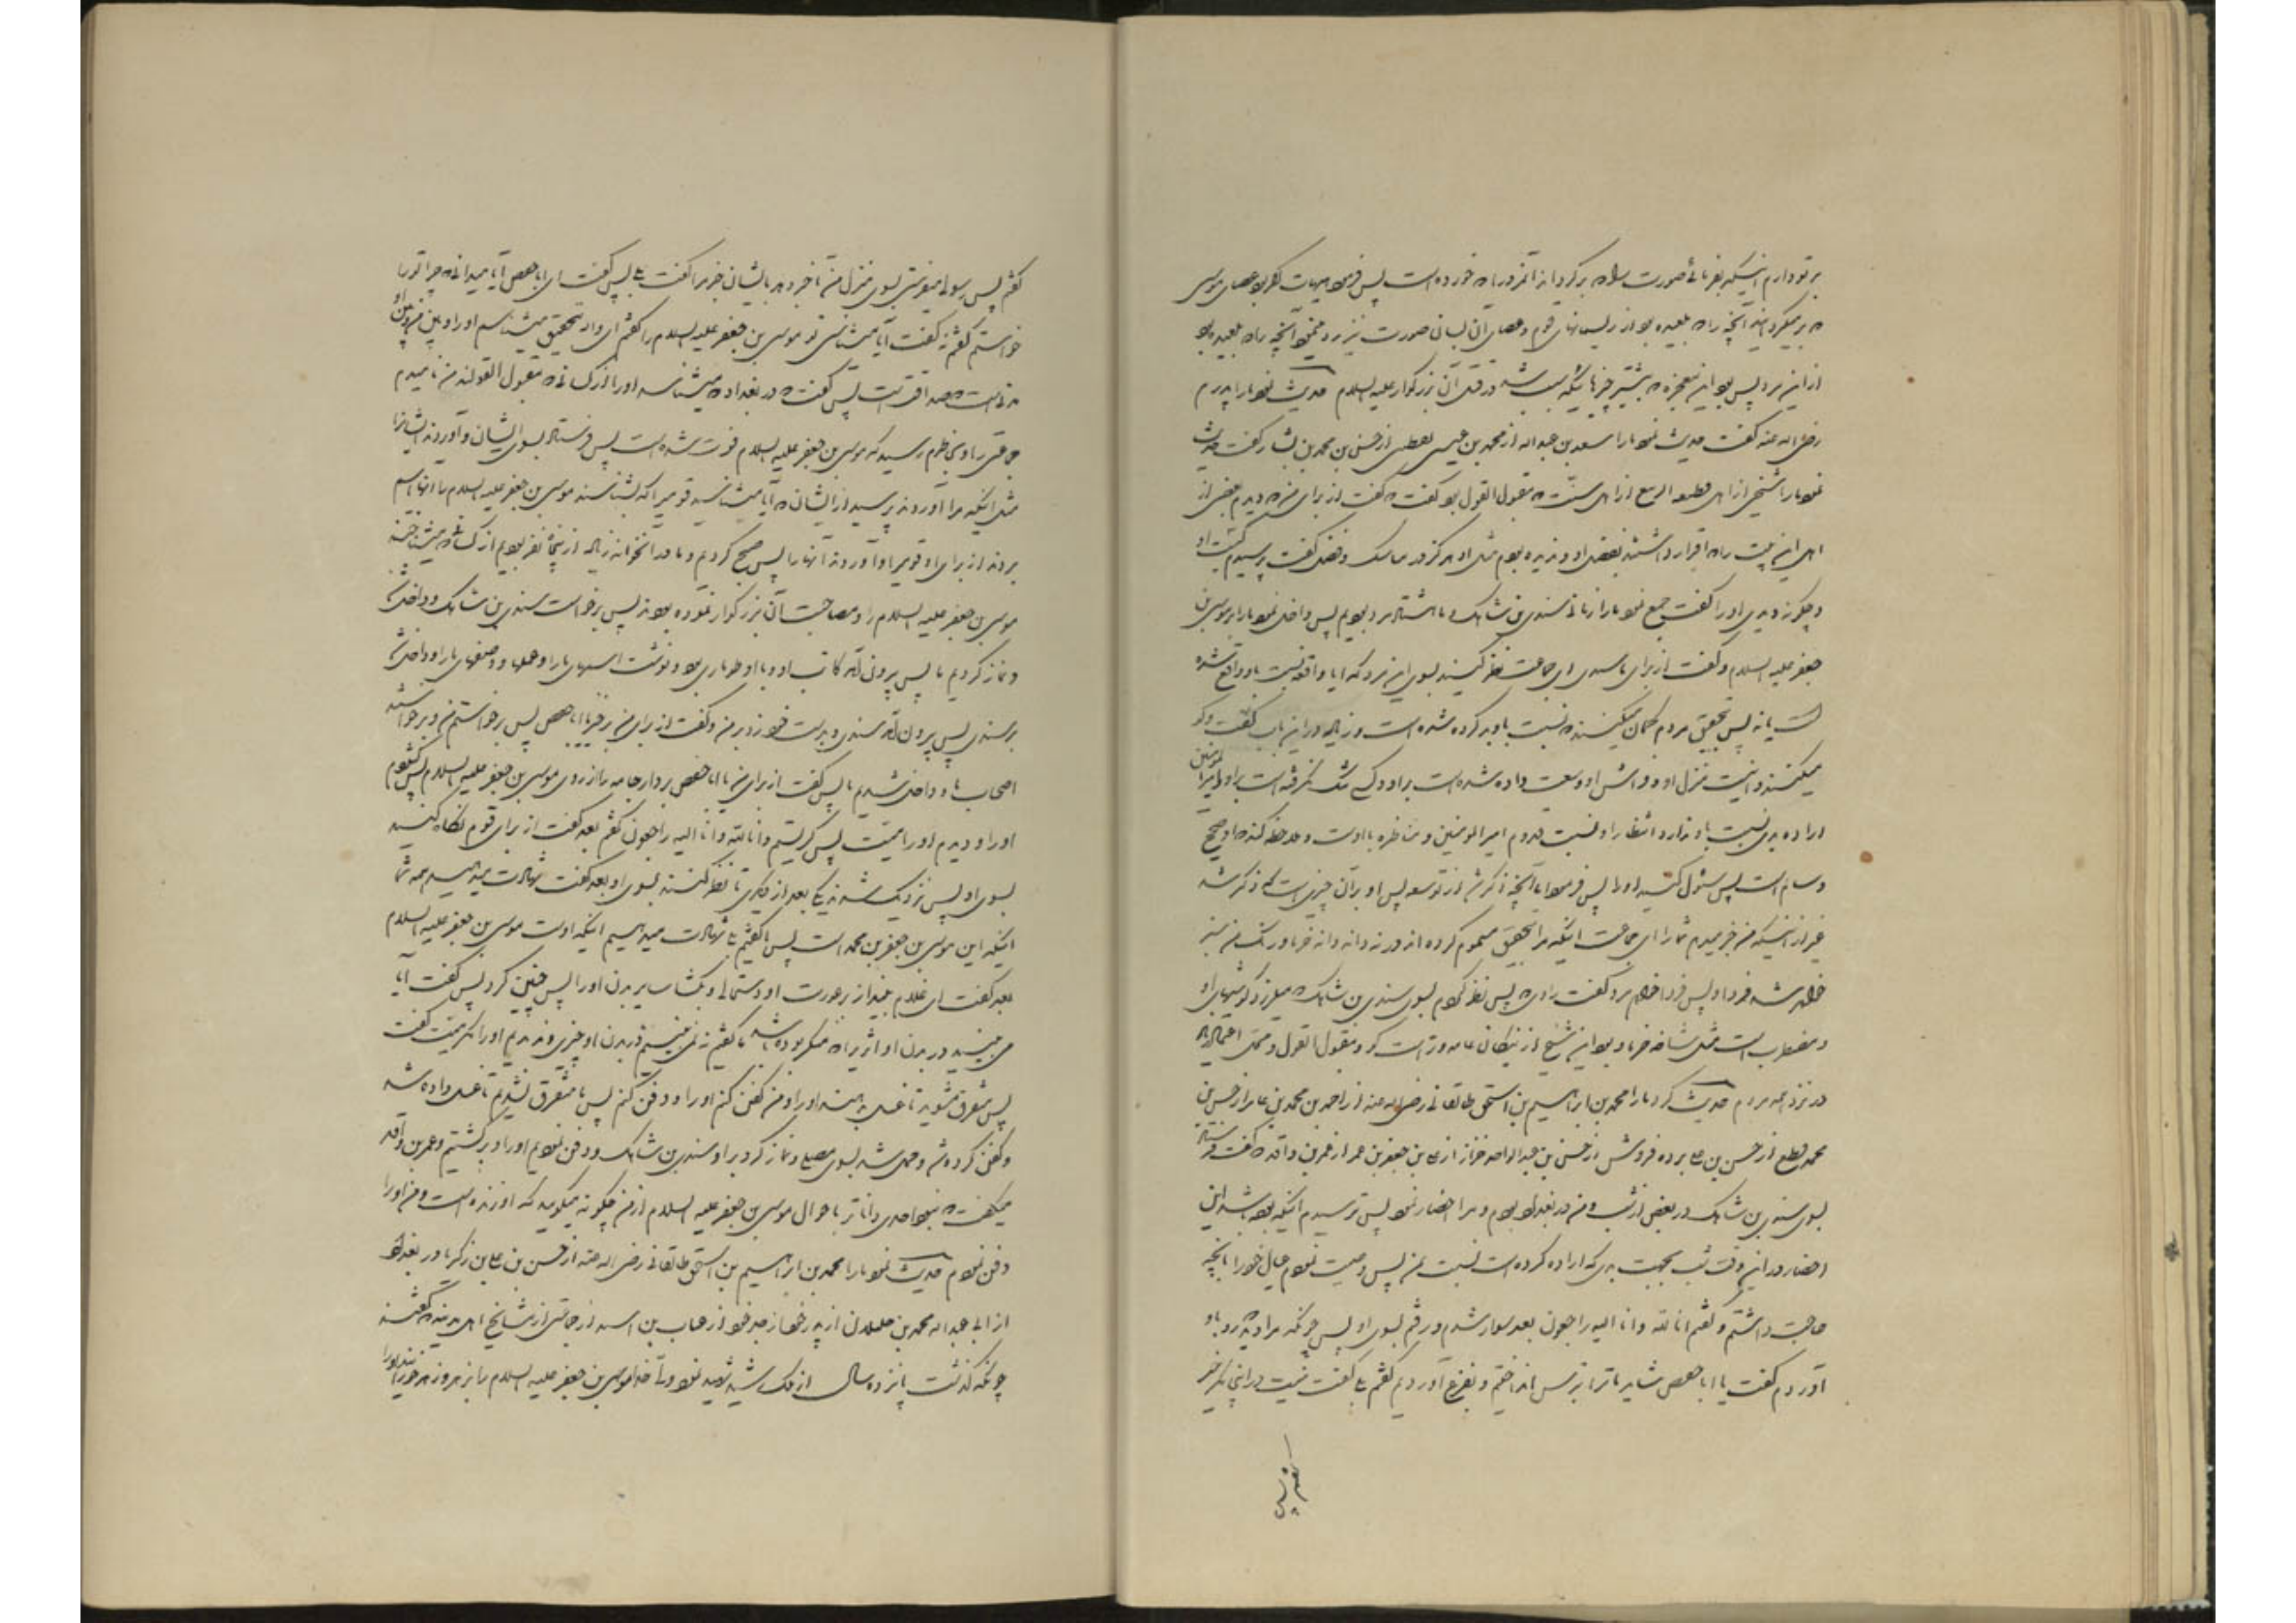 بر تو دارم اینکه بفرمائی صورت را که برگرداند آنمرد را که خورده است پس فرمود هیهات اگر بود عصای موسی
که برمیگردانید آنچه را که بلعیده بود از ریسمانهای قوم و عصای آن این صورت نیز رد مینمود آنچه را که بلعیده بود
از این مرد پس بود این معجزه که بیشتر چیزهائیکه سبب شد در قتل آن بزرگوار علیه السلام حدیث نمود ما را پدرم
رضی الله عنه گفت حدیث نمود ما را سعد بن عبدالله از محمد بن عیسی یقطینی از حسن بن محمد بن بشار گفت حدیث
نمود ما را شیخی از اهل قطیعه الربیع از اهل سنت که مقبول القول بود گفت که گفت از برای من که دیدم بعضی از
اهل این بیت را که اقرار داشتند بفضل او و ندیده بودم مثل او هرگز در نسک و فضل گفت پرسیدم کیست او
و چگونه دیدی او را گفت جمع نمود ما را زمانی سندی بن شاهک و ما هشتاد مرد بودیم پس داخل نمود ما را بر موسی بن
جعفر علیه السلام و گفت از برای ما سندی ای جماعت نظر کنید بسوی این مرد که آیا واقعه نسبت باو واقع شده
است یا نه پس بتحقیق مردم گمان میکنند که نسبت باو بد کرده شده است و زیاد در این باب گفت و گو
میکنند و اینست منزل او و فراش او وسعت داده شده است بر او و کسی تنگ نگرفته است بر او و امیر المؤمنین
اراده بدی نسبت باو ندارد انتظار او نسبت قدوم امیر المؤمنین و مناظره با اوست و ملاحظه کنید که او صحیح
و سالم است پس سئوال کنید او را پس فرمود اما آنچه ذکر شد از توسعه پس او بر آن چیزیست که ذکر شد
غیر از اینکه من خبر میدهم شما را ای جماعت اینکه مرا بتحقیق مسموم کرده اند در نه دانه خرما و رنگ من سبز
خواهد شد فردا و پس فردا خواهم مرد گفت راوی که پس نظر کردم بسوی سندی بن شاهک که میلرزد گوشهای او
و مضطرب است مثل شاخه خرما و بود این شیخ از نیکان عامه و راست گو و مقبول القول و محل اعتماد
در نزد همه مردم حدیث کرد ما را محمد بن ابراهیم بن اسحق طالقانی رضی الله عنه از احمد بن محمد بن عامر از حسن بن
محمد قطعی از حسن بن علی برده فروش از حسن بن عبدالواحد خزاز از علی بن جعفر بن عمر از عمر بن واقد که گفت فرستاد
بسوی سندی بن شاهک در بعضی از شب و من در بغداد بودم و مرا احضار نمود پس ترسیدم اینکه بوده باشد این
احضار در این وقت شب بجهت بدی که اراده کرده است نسبت بمن پس وصیت نمودم عیال خود را بآنچه
حاجت داشتم و گفتم انا لله و انا الیه راجعون بعد سوار شدم و رفتم بسوی او پس چونکه مرا دید که رو باو
آوردم گفت یا ابا حفص شاید ما ترا بترس انداختیم و بفزع آوردیم گفتم بلی گفت نیست در اینجا مگر خیر
گفتم پس
گفتم پس رسولی میفرستی بسوی منزل من تا خبر دهد بایشان خبر مرا گفت بلی پس گفت ای ابا حفص آیا میدانی که چرا تو را
خواستم گفتم نه گفت آیا میشناسی تو موسی بن جعفر علیه السلام را گفتم ای والله بتحقیق میشناسم او را و بین من و بین او
مدتی است که صداقت است پس گفت که در بغداد که میشناسد او را از کسانی که مقبول القولند من نامیدم
جماعتی را و بخاطرم رسید که موسی بن جعفر علیه السلام فوت شده است پس فرستاد بسوی ایشان و آوردند ایشانرا
مثل اینکه مرا آوردند پرسید از ایشان که آیا میشناسید قومیرا که بشناسند موسی بن جعفر علیه السلام را آنها اسم
بردند از برای او قومی را و آوردند آنها را پس صبح کردیم و ما در آنخانه زیاد از پنجاه نفر بودیم از کسانیکه میشناختند
موسی بن جعفر علیه السلام را و مصاحبت آن بزرگوار نموده بودند پس برخواست سندی بن شاهک و داخل شد
و نماز کردیم ما پس بیرون آمد کاتب او و با او طوماری بود و نوشت اسمهای ما را و عملها و وصفهای ما را و داخل شد
بر سندی پس بیرون آمد سندی و بدست خود زد بر من و گفت از برای من برخیز یا ابا حفص پس برخواستم من و برخواستند
اصحاب ما و داخل شدیم ما پس گفت از برای من یا ابا حفص بردار جامه را از روی موسی بن جعفر علیه السلام پس گشودم
او را و دیدم او را میت پس گریستم و انا لله و انا الیه راجعون گفتم بعد گفت از برای قوم نگاه کنید
بسوی او پس نزدیک شدند یکی بعد از دیگری تا نظر کنند بسوی او بعد گفت شهادت میدهید همه شما
اینکه این موسی بن جعفر بن محمد است پس ما گفتیم بلی شهادت میدهیم اینکه اوست موسی بن جعفر علیه السلام
بعد گفت ای غلام بینداز بر عورت او دستمالی و بگشا سایر بدن او را پس چنین کرد پس گفت آیا
می بینید در بدن او اثری را که منکر بوده باشد ما گفتیم نمی بینیم در بدن او چیزی و ندیدیم او را مگر میت گفت
پس متفرق مشوید تا غسل بدهند او را و من کفن کنم او را و دفن کنم پس ما متفرق نشدیم تا غسل داده شد
و کفن کرده شد و حمل شد بسوی مصلی و نماز کرد بر او سندی بن شاهک و دفن نمودیم او را و برگشتیم و عمر بن واقد
میگفت که نبود احدی داناتر باحوال موسی بن جعفر علیه السلام از من چگونه میگویید که او زنده است و من او را
دفن نمودم حدیث نمود ما را محمد بن ابراهیم بن اسحق طالقانی رضی الله عنه از حسن بن علی بن زکریا در بغداد
از ابی عبدالله محمد بن خلیلان از پدر خود از جد خود از عتاب بن اسید از جماعتی از مشایخ اهل مدینه که گفتند
چونکه گذشت پانزده سال از ملک رشید شهید نمود ولی خدا موسی بن جعفر علیه السلام را بزهر و زهر خورانیدند او را